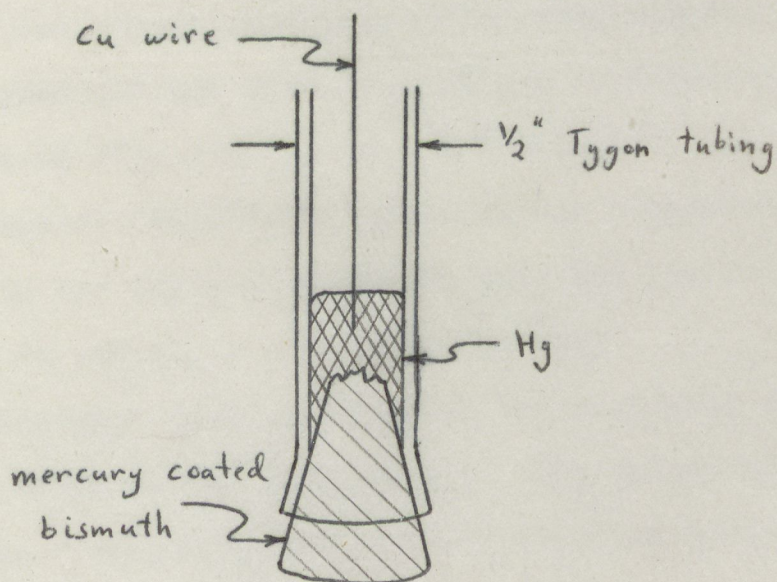 Cu wire
½" Tygon tubing
Hg
mercury coated
bismuth